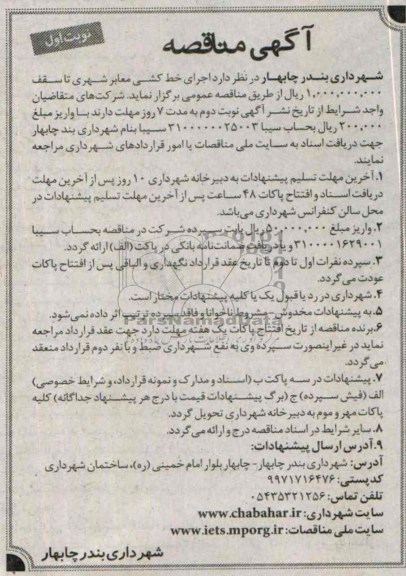 نوبت اول
آگهی مناقصه
شهرداری بندر چابهار در نظر دارد اجرای خط کشی معابر شهری تا سقف
۱,۰۰۰,۰۰۰,۰۰۰ ریال از طریق مناقصه عمومی برگزار نماید. شرکت‌های متقاضیان
واجد شرایط از تاریخ نشر آگهی نوبت دوم به مدت ۷ روز مهلت دارند با واریز مبلغ
۲۰۰,۰۰۰ ریال بحساب سیبا ۳۱۰۰۰۰۰۰۲۵۰۰۳ سیبا بنام شهرداری بند چابهار
جهت دریافت اسناد به سایت ملی مناقصات یا امور قراردادهای شهرداری مراجعه
نمایند.
۱. آخرین مهلت تسلیم پیشنهادات به دبیرخانه شهرداری ۱۰ روز پس از آخرین مهلت
دریافت اسناد و افتتاح پاکات ۴۸ ساعت پس از آخرین مهلت تسلیم پیشنهادات در
محل سالن کنفرانس شهرداری می‌باشد.
۲. واریز مبلغ ۵۰,۰۰۰,۰۰۰ ریال بابت سپرده شرکت در مناقصه بحساب سیبا
۳۱۰۰۰۰۱۶۲۹۰۰۱ و یا دریافت ضمانت‌نامه بانکی در پاکت (الف) ارائه گردد.
۳. سپرده نفرات اول تا دوم تا تاریخ عقد قرارداد نگهداری و الباقی پس از افتتاح پاکات
عودت می‌گردد.
۴. شهرداری در رد یا قبول یک یا کلیه پیشنهادات مختار است.
۵. به پیشنهادات مخدوش، مشروط، ناخوانا و فاقد سپرده ترتیب اثر داده نمی‌شود.
۶. برنده مناقصه از تاریخ افتتاح پاکات یک هفته مهلت دارد جهت عقد قرارداد مراجعه
نماید در غیر اینصورت سپرده وی به نفع شهرداری ضبط و با نفر دوم قرارداد منعقد
می‌گردد.
۷. پیشنهادات در سه پاکت ب (اسناد و مدارک و نمونه قرارداد، و شرایط خصوصی)
الف (فیش سپرده) ج (برگ پیشنهادات قیمت با درج هر پیشنهاد جداگانه) کلیه
پاکات مهر و موم به دبیرخانه شهرداری تحویل گردد.
۸. سایر شرایط در اسناد مناقصه درج و ارائه می‌گردد.
۹. آدرس ارسال پیشنهادات:
آدرس: شهرداری بندر چابهار- چابهار بلوار امام خمینی (ره)، ساختمان شهرداری
کدپستی: ۹۹۷۱۷۱۶۴۷۶
تلفن تماس: ۰۵۴۳۵۳۲۱۲۵۶
سایت شهرداری: www.chabahar.ir
سایت ملی مناقصات: www.iets.mporg.ir
شهرداری بندر چابهار